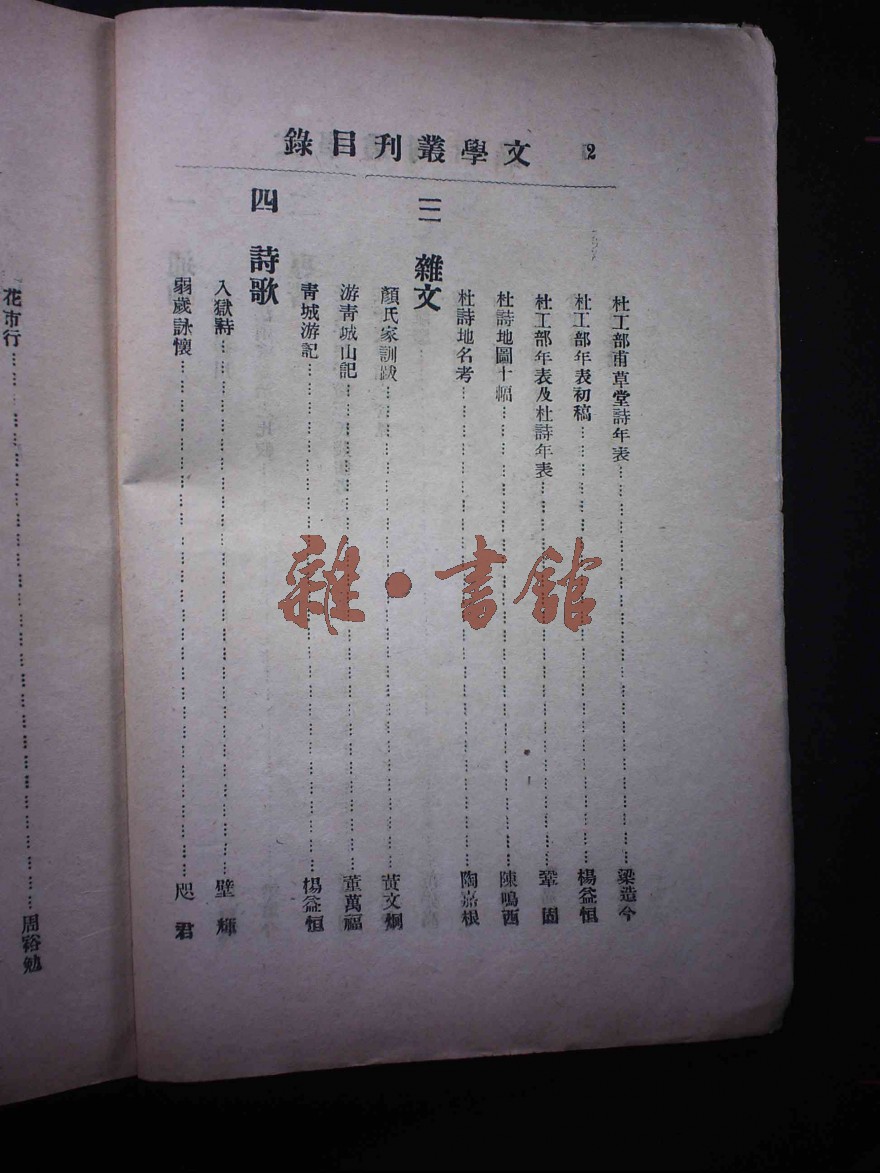 文學叢刊目錄 2
杜工部甫草堂詩年表 梁造今
杜工部年表初稿 楊益恒
杜工部年表及杜詩年表 鞏固
杜詩地圖十幅 陳鳴西
杜詩地名考 陶嘉根
三 雜文
顏氏家訓跋 黃文炯
游青城山記 董萬福
青城游記 楊益恒
四 詩歌
入獄詩 壁輝
弱歲詠懷 咫君
花市行 周裕勉
雜·書館